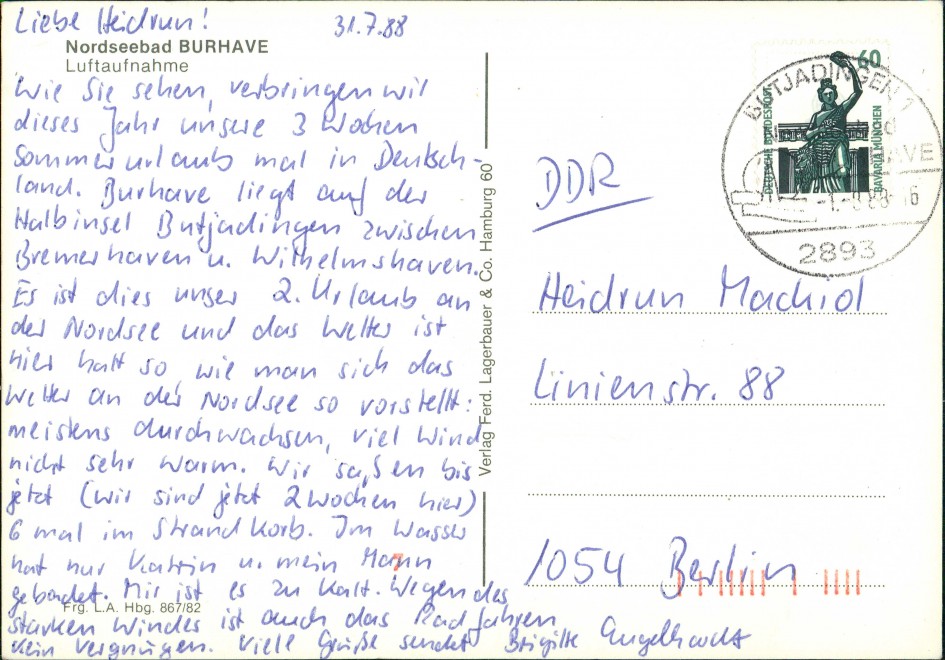 Liebe Heidrun! 31.7.88
Nordseebad BURHAVE
Luftaufnahme
Wie Sie sehen, verbringen wir
dieses Jahr unsere 3 Wochen
Sommerurlaub mal in Deutsch-
land. Burhave liegt auf der
Halbinsel Butjadingen zwischen
Bremerhaven u. Wilhelmshaven.
Es ist dies unser 2. Urlaub an
der Nordsee und das Wetter ist
hier halt so wie man sich das
Wetter an der Nordsee so vorstellt:
meistens durchwachsen, viel Wind
nicht sehr warm. Wir saßen bis
jetzt (wir sind jetzt 2 Wochen hier)
6 mal im Strandkorb. Im Wasser
hat nur Katrin u. mein Mann
gebadet. Mir ist es zu kalt. Wegen des
starken Windes ist auch das Radfahren
kein Vergnügen. Viele Grüße sendet Brigitte Engelhardt
Frg. L.A. Hbg. 867/82
Verlag Ferd. Lagerbauer & Co. Hamburg 60
DDR
Heidrun Machiol
Linienstr. 88
1054 Berlin
60
DEUTSCHE BUNDESPOST
BAVARIA MÜNCHEN
BUTJADINGEN 1
2893